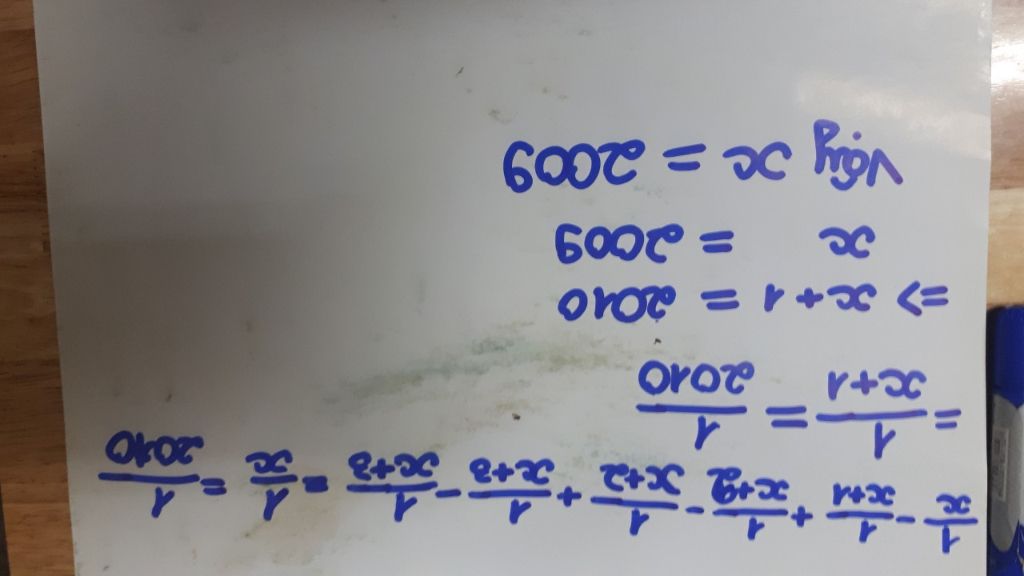 1/x - 1/x+1 + 1/x+2 - 1/x+2 + 1/x+3 - 1/x+3 - 1/x = 1/2010
= 1/x+1 = 1/2010
=> x+1 = 2010
x = 2009
Vậy x = 2009